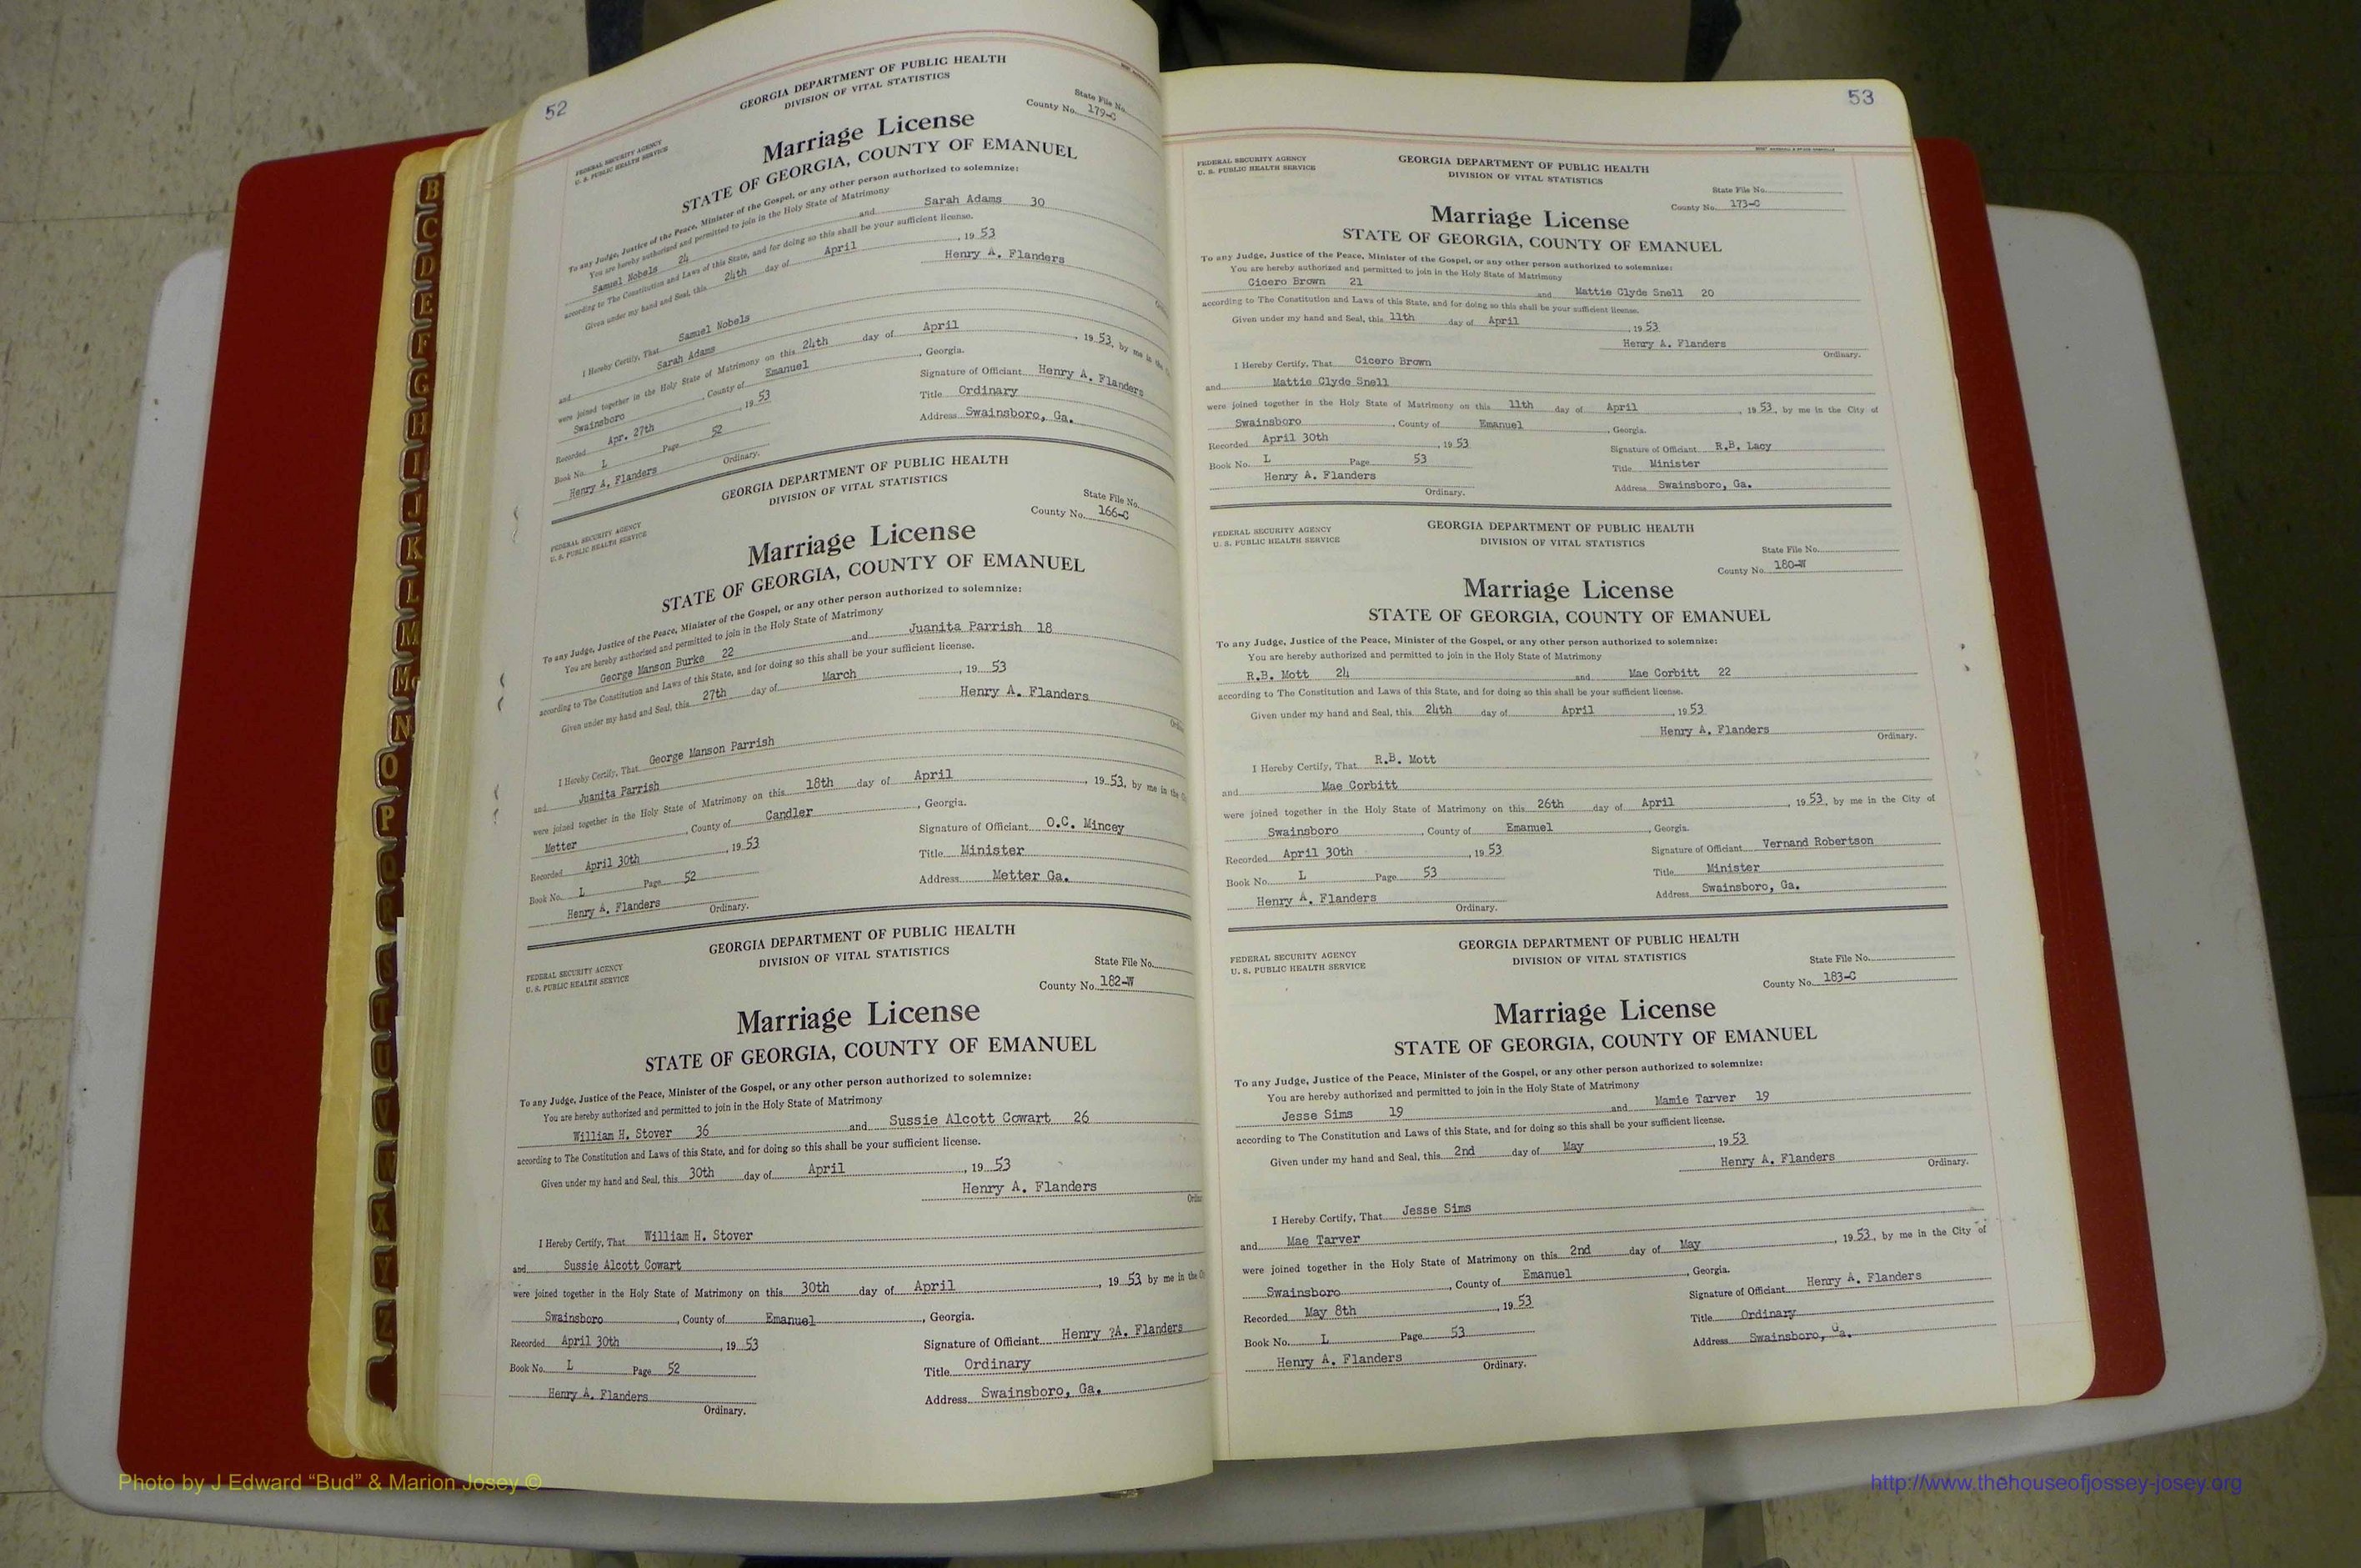 52
GEORGIA DEPARTMENT OF PUBLIC HEALTH
DIVISION OF VITAL STATISTICS
FEDERAL SECURITY AGENCY
U. S. PUBLIC HEALTH SERVICE
State File No.
County No. 179-C
Marriage License
STATE OF GEORGIA, COUNTY OF EMANUEL
To any Judge, Justice of the Peace, Minister of the Gospel, or any other person authorized to solemnize:
You are hereby authorized and permitted to join in the Holy State of Matrimony
Samuel Nobels 24 and Sarah Adams 30
according to The Constitution and Laws of this State, and for doing so this shall be your sufficient license.
Given under my hand and Seal, this 24th day of April, 19 53
Henry A. Flanders
I Hereby Certify, That Samuel Nobels
and Sarah Adams
were joined together in the Holy State of Matrimony on this 24th day of April, 19 53, by me in the
Swainsboro, County of Emanuel, Georgia.
Recorded Apr. 27th, 19 53
Signature of Officiant Henry A. Flanders
Book No. L Page 52
Title Ordinary
Henry A. Flanders
Ordinary.
Address Swainsboro, Ga.
GEORGIA DEPARTMENT OF PUBLIC HEALTH
DIVISION OF VITAL STATISTICS
FEDERAL SECURITY AGENCY
U. S. PUBLIC HEALTH SERVICE
State File No.
County No. 166-C
Marriage License
STATE OF GEORGIA, COUNTY OF EMANUEL
To any Judge, Justice of the Peace, Minister of the Gospel, or any other person authorized to solemnize:
You are hereby authorized and permitted to join in the Holy State of Matrimony
George Manson Burke 22 and Juanita Parrish 18
according to The Constitution and Laws of this State, and for doing so this shall be your sufficient license.
Given under my hand and Seal, this 27th day of March, 19 53
Henry A. Flanders
I Hereby Certify, That George Manson Parrish
and Juanita Parrish
were joined together in the Holy State of Matrimony on this 18th day of April, 19 53, by me in the
Metter, County of Candler, Georgia.
Recorded April 30th, 19 53
Signature of Officiant O.C. Mincey
Book No. L Page 52
Title Minister
Henry A. Flanders
Ordinary.
Address Metter Ga.
GEORGIA DEPARTMENT OF PUBLIC HEALTH
DIVISION OF VITAL STATISTICS
FEDERAL SECURITY AGENCY
U. S. PUBLIC HEALTH SERVICE
State File No.
County No. 182-W
Marriage License
STATE OF GEORGIA, COUNTY OF EMANUEL
To any Judge, Justice of the Peace, Minister of the Gospel, or any other person authorized to solemnize:
You are hereby authorized and permitted to join in the Holy State of Matrimony
William H. Stover 36 and Sussie Alcott Cowart 26
according to The Constitution and Laws of this State, and for doing so this shall be your sufficient license.
Given under my hand and Seal, this 30th day of April, 19 53
Henry A. Flanders
I Hereby Certify, That William H. Stover
and Sussie Alcott Cowart
were joined together in the Holy State of Matrimony on this 30th day of April, 19 53 by me in the
Swainsboro, County of Emanuel, Georgia.
Recorded April 30th, 19 53
Signature of Officiant Henry ?A. Flanders
Book No. L Page 52
Title Ordinary
Henry A. Flanders
Ordinary.
Address Swainsboro, Ga.
53
FEDERAL SECURITY AGENCY
U. S. PUBLIC HEALTH SERVICE
GEORGIA DEPARTMENT OF PUBLIC HEALTH
DIVISION OF VITAL STATISTICS
State File No.
County No. 173-C
Marriage License
STATE OF GEORGIA, COUNTY OF EMANUEL
To any Judge, Justice of the Peace, Minister of the Gospel, or any other person authorized to solemnize:
You are hereby authorized and permitted to join in the Holy State of Matrimony
Cicero Brown 21 and Mattie Clyde Snell 20
according to The Constitution and Laws of this State, and for doing so this shall be your sufficient license.
Given under my hand and Seal, this 11th day of April, 19 53
Henry A. Flanders
Ordinary.
I Hereby Certify, That Cicero Brown
and Mattie Clyde Snell
were joined together in the Holy State of Matrimony on this 11th day of April, 19 53, by me in the City of
Swainsboro, County of Emanuel, Georgia.
Recorded April 30th, 19 53
Signature of Officiant R.B. Lacy
Book No. L Page 53
Title Minister
Henry A. Flanders
Ordinary.
Address Swainsboro, Ga.
FEDERAL SECURITY AGENCY
U. S. PUBLIC HEALTH SERVICE
GEORGIA DEPARTMENT OF PUBLIC HEALTH
DIVISION OF VITAL STATISTICS
State File No.
County No. 180-W
Marriage License
STATE OF GEORGIA, COUNTY OF EMANUEL
To any Judge, Justice of the Peace, Minister of the Gospel, or any other person authorized to solemnize:
You are hereby authorized and permitted to join in the Holy State of Matrimony
R.B. Mott 24 and Mae Corbitt 22
according to The Constitution and Laws of this State, and for doing so this shall be your sufficient license.
Given under my hand and Seal, this 24th day of April, 19 53
Henry A. Flanders
Ordinary.
I Hereby Certify, That R.B. Mott
and Mae Corbitt
were joined together in the Holy State of Matrimony on this 26th day of April, 19 53, by me in the City of
Swainsboro, County of Emanuel, Georgia.
Recorded April 30th, 19 53
Signature of Officiant Vernand Robertson
Book No. L Page 53
Title Minister
Henry A. Flanders
Ordinary.
Address Swainsboro, Ga.
FEDERAL SECURITY AGENCY
U. S. PUBLIC HEALTH SERVICE
GEORGIA DEPARTMENT OF PUBLIC HEALTH
DIVISION OF VITAL STATISTICS
State File No.
County No. 183-C
Marriage License
STATE OF GEORGIA, COUNTY OF EMANUEL
To any Judge, Justice of the Peace, Minister of the Gospel, or any other person authorized to solemnize:
You are hereby authorized and permitted to join in the Holy State of Matrimony
Jesse Sims 19 and Mamie Tarver 19
according to The Constitution and Laws of this State, and for doing so this shall be your sufficient license.
Given under my hand and Seal, this 2nd day of May, 19 53
Henry A. Flanders
Ordinary.
I Hereby Certify, That Jesse Sims
and Mae Tarver
were joined together in the Holy State of Matrimony on this 2nd day of May, 19 53, by me in the City of
Swainsboro, County of Emanuel, Georgia.
Recorded May 8th, 19 53
Signature of Officiant Henry A. Flanders
Book No. L Page 53
Title Ordinary
Henry A. Flanders
Ordinary.
Address Swainsboro, Ga.
B
C
D
E
F
G
H
I
J
K
L
M
Mc
N
O
P
U
V
W
X
Y
Z
Photo by J Edward “Bud” & Marion Josey ©
http://www.thehouseofjossey-josey.org